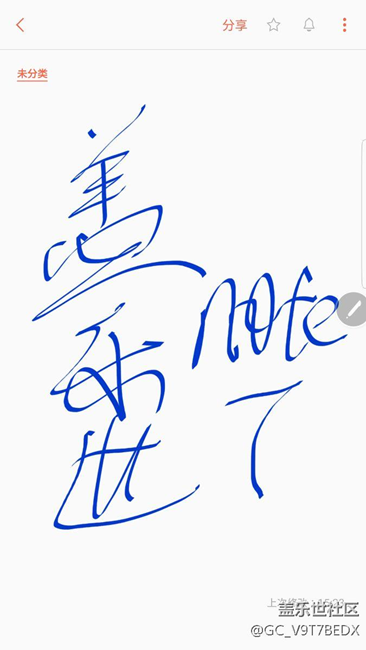 分享
未分类
盖
乐
世
note
7
上次修改：15:23
盖乐世社区
@GC_V9T7BEDX